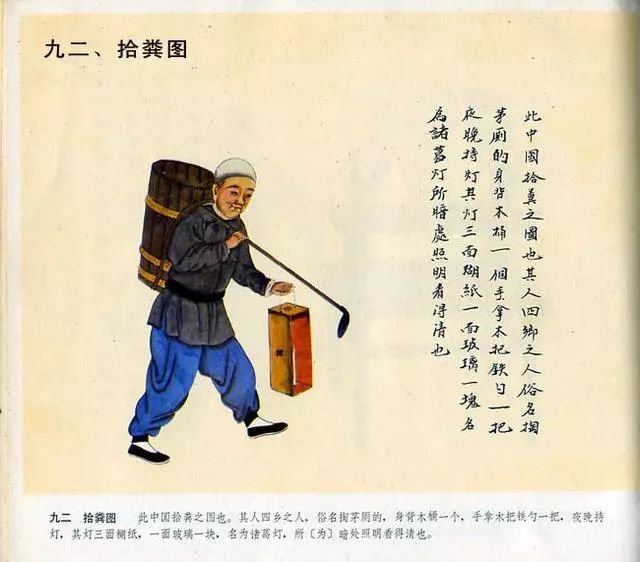 九二、拾粪图
此中國拾糞之圖也其人四鄉之人俗名掏
茅厠的身背木桶一個手拿木把鉄勺一把
夜晚持灯其灯三面糊紙一面玻璃一塊名
為諸葛灯所暗處照明看得清也
九二 拾粪图 此中国拾粪之图也。其人四乡之人,俗名掏茅厕的,身背木桶一个,手拿木把铁勺一把,夜晚持
灯,其灯三面糊纸,一面玻璃一块,名为诸葛灯,所〔为〕暗处照明看得清也。